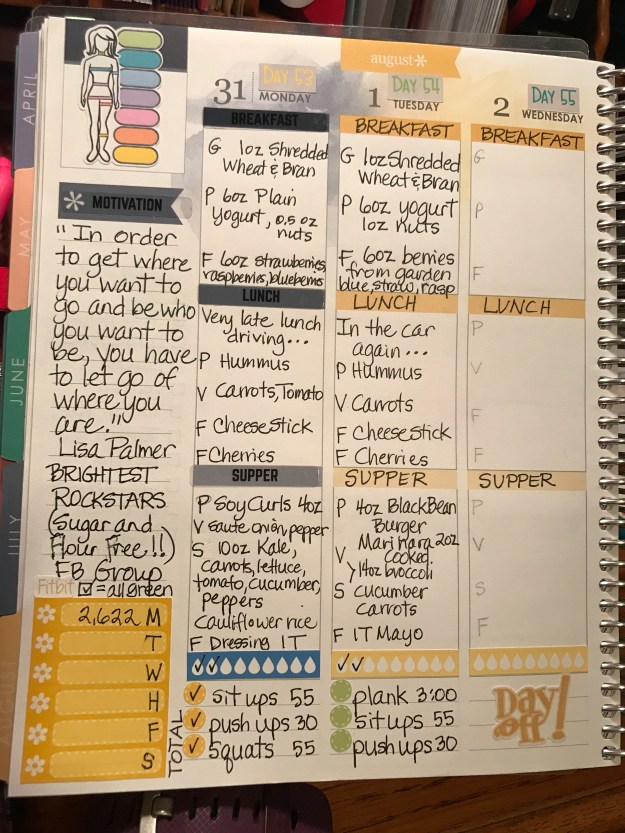 APRIL
MAY
JUNE
JULY
* MOTIVATION
"In order
to get where
you want to
go and be who
you want to
be, you have
to let go of
where you
are."
Lisa Palmer
BRIGHTEST
ROCKSTARS
(Sugar and
Flour Free!!)
FB Group
Fitbit ☑ = all green
2,622 M
T
W
H
F
S
TOTAL
31 DAY 53
MONDAY
BREAKFAST
G 1oz Shredded
Wheat & Bran
P 6oz Plain
Yogurt, 0.5 oz
nuts
F 6oz strawberries,
raspberries, blueberries
LUNCH
Very late lunch
driving...
P Hummus
V Carrots, Tomato
F Cheese Stick
F Cherries
SUPPER
P Soy Curls 4oz
V saute onion, pepper
S 10oz Kale,
carrots, lettuce,
tomato, cucumber,
peppers
Cauliflower rice
F Dressing 1T
✓✓
✓ sit ups 55
✓ push ups 30
✓ Squats 55
august*
1 DAY 54
TUESDAY
BREAKFAST
G 1oz Shredded
Wheat & Bran
P 6oz yogurt
1oz nuts
F 6oz berries
from garden
blue, straw, rasp
LUNCH
In the car
again...
P Hummus
V Carrots
F Cheese Stick
F Cherries
SUPPER
P 4oz Black Bean
Burger
Marinara 2oz
V cooked
14oz broccoli
S cucumber
carrots
F 1T Mayo
✓✓
plank 3:00
sit ups 55
push ups 30
2 DAY 55
WEDNESDAY
BREAKFAST
G
P
F
LUNCH
P
V
F
F
SUPPER
P
V
S
F
Day
off!